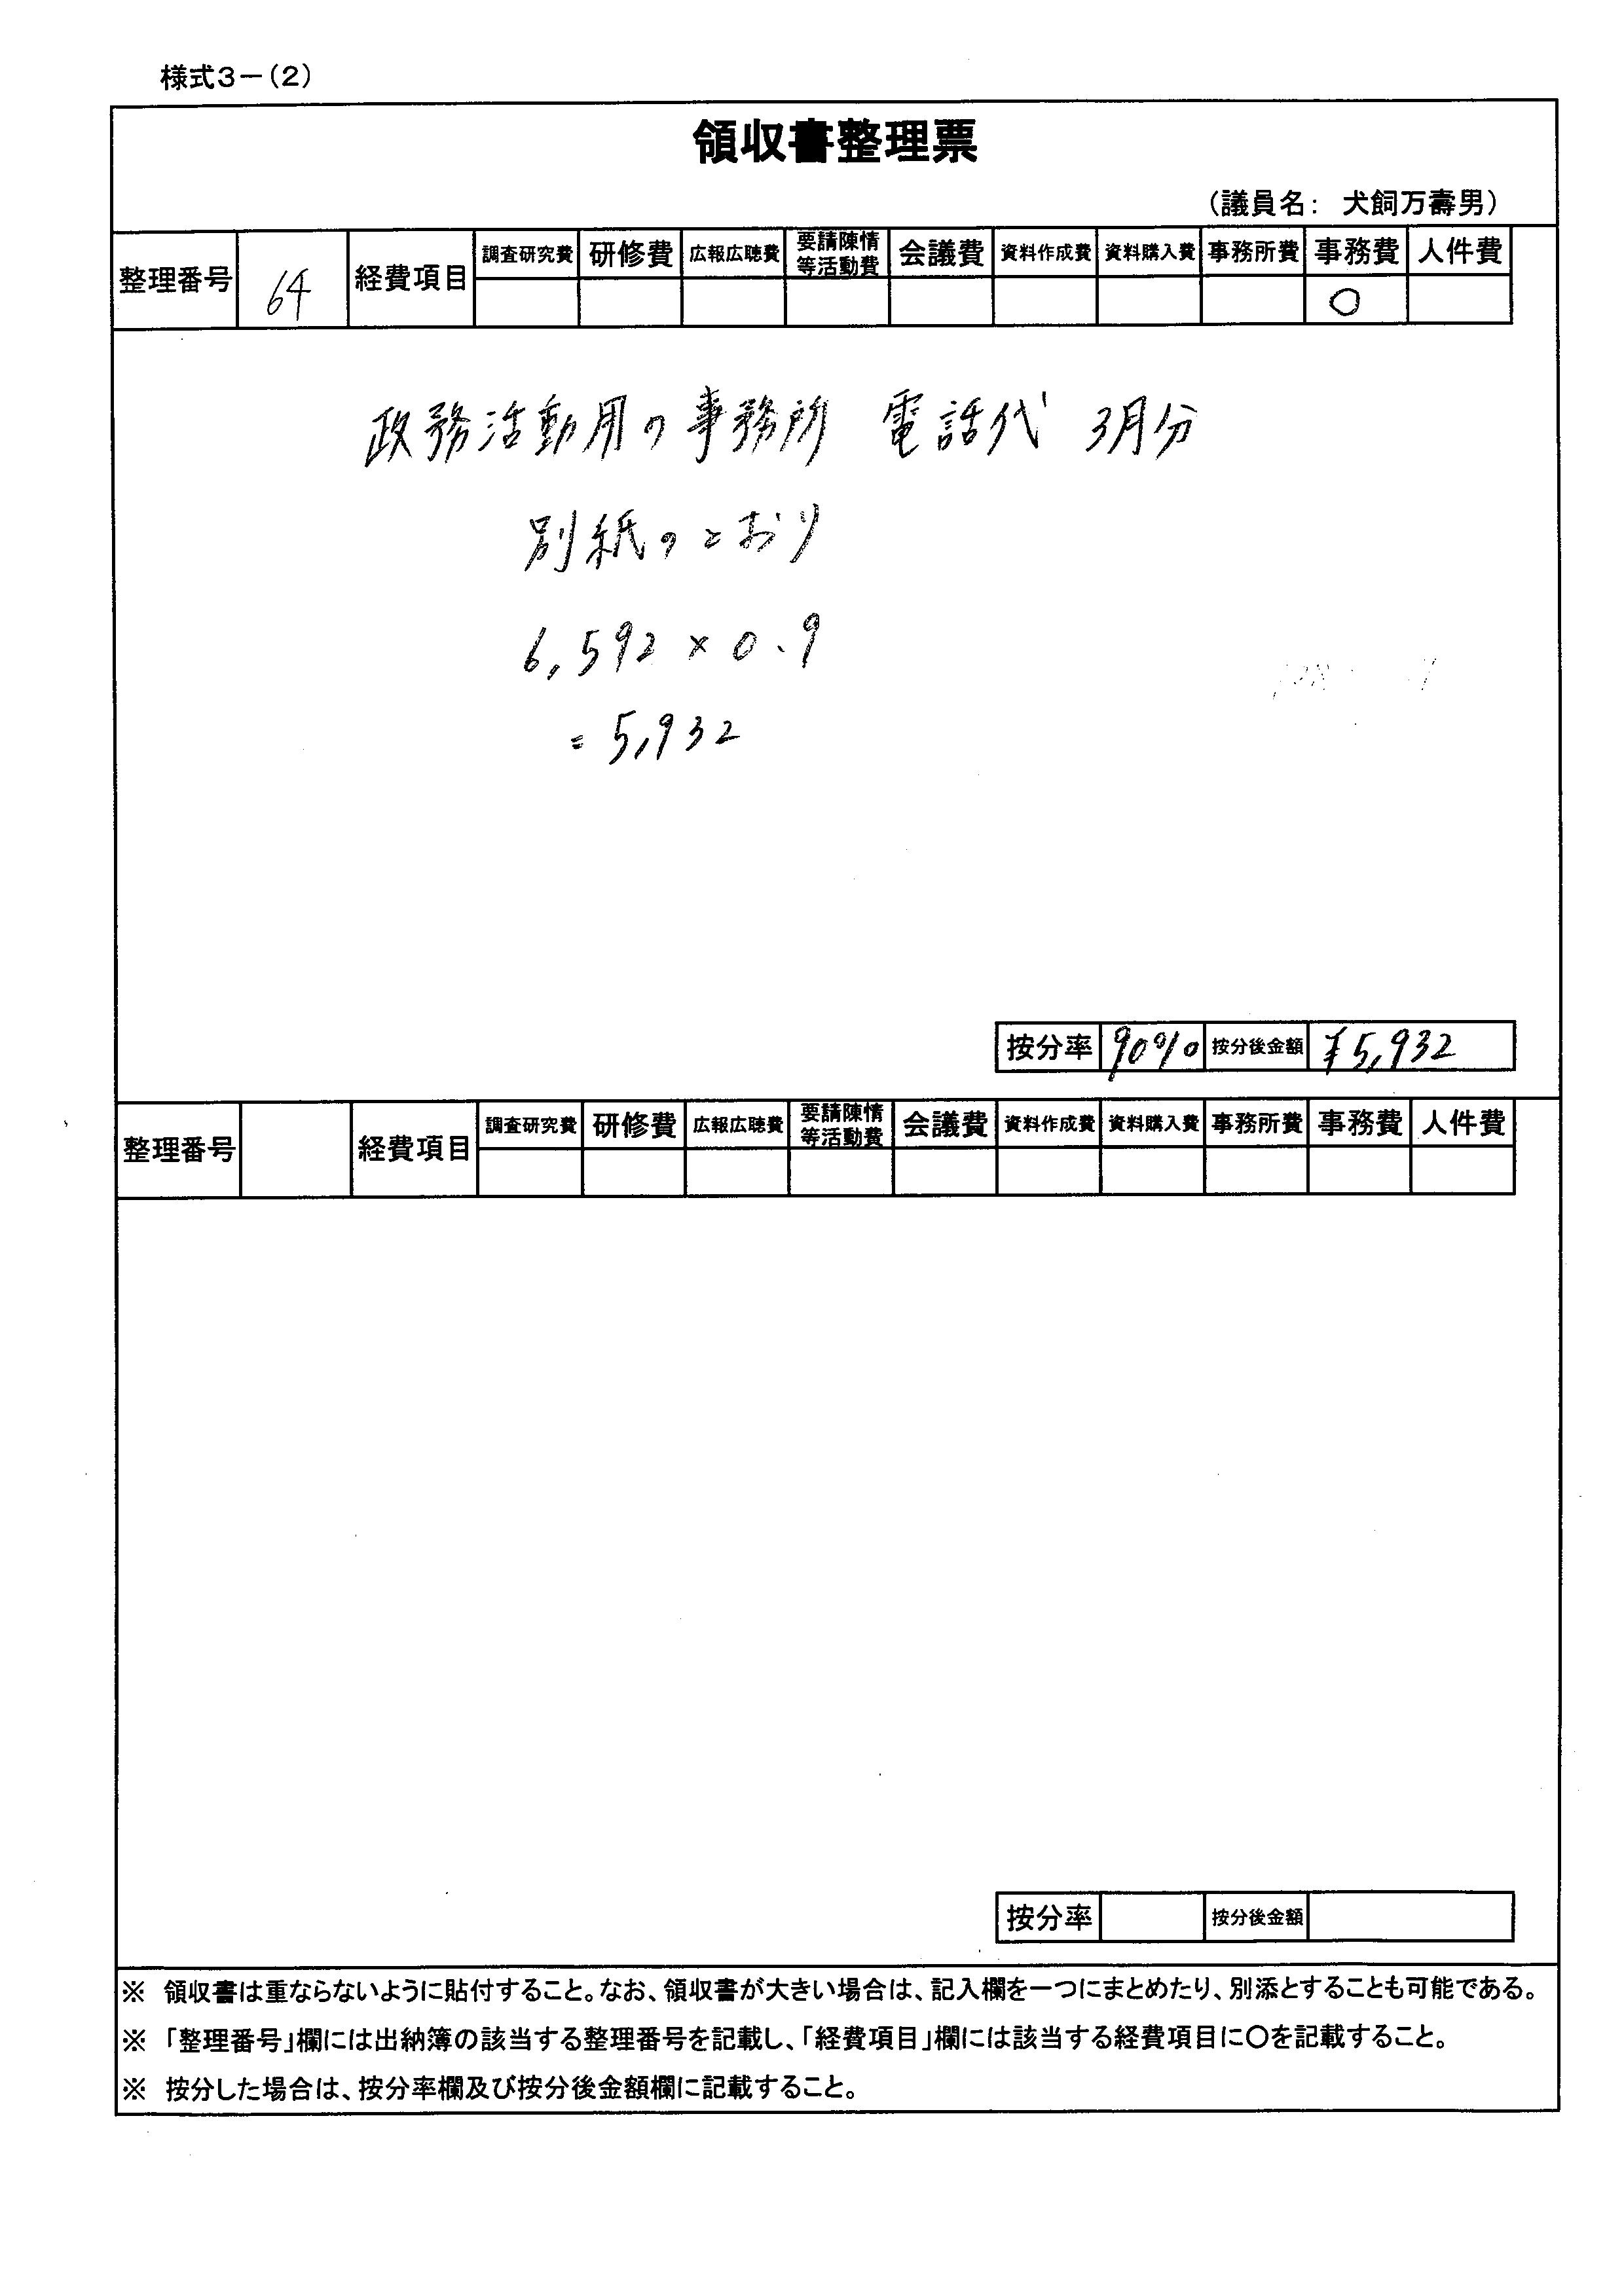 様式3－(2)
領収書整理票
(議員名: 犬飼万壽男)
整理番号 64 経費項目 調査研究費 研修費 広報広聴費 要請陳情等活動費 会議費 資料作成費 資料購入費 事務所費 事務費 人件費
○
政務活動用の事務所 電話代 3月分
別紙のとおり
6,592×0.9
=5,932
按分率 90% 按分後金額 ¥5,932
整理番号 経費項目 調査研究費 研修費 広報広聴費 要請陳情等活動費 会議費 資料作成費 資料購入費 事務所費 事務費 人件費
按分率 按分後金額
※ 領収書は重ならないように貼付すること。なお、領収書が大きい場合は、記入欄を一つにまとめたり、別添とすることも可能である。
※ 「整理番号」欄には出納簿の該当する整理番号を記載し、「経費項目」欄には該当する経費項目に○を記載すること。
※ 按分した場合は、按分率欄及び按分後金額欄に記載すること。